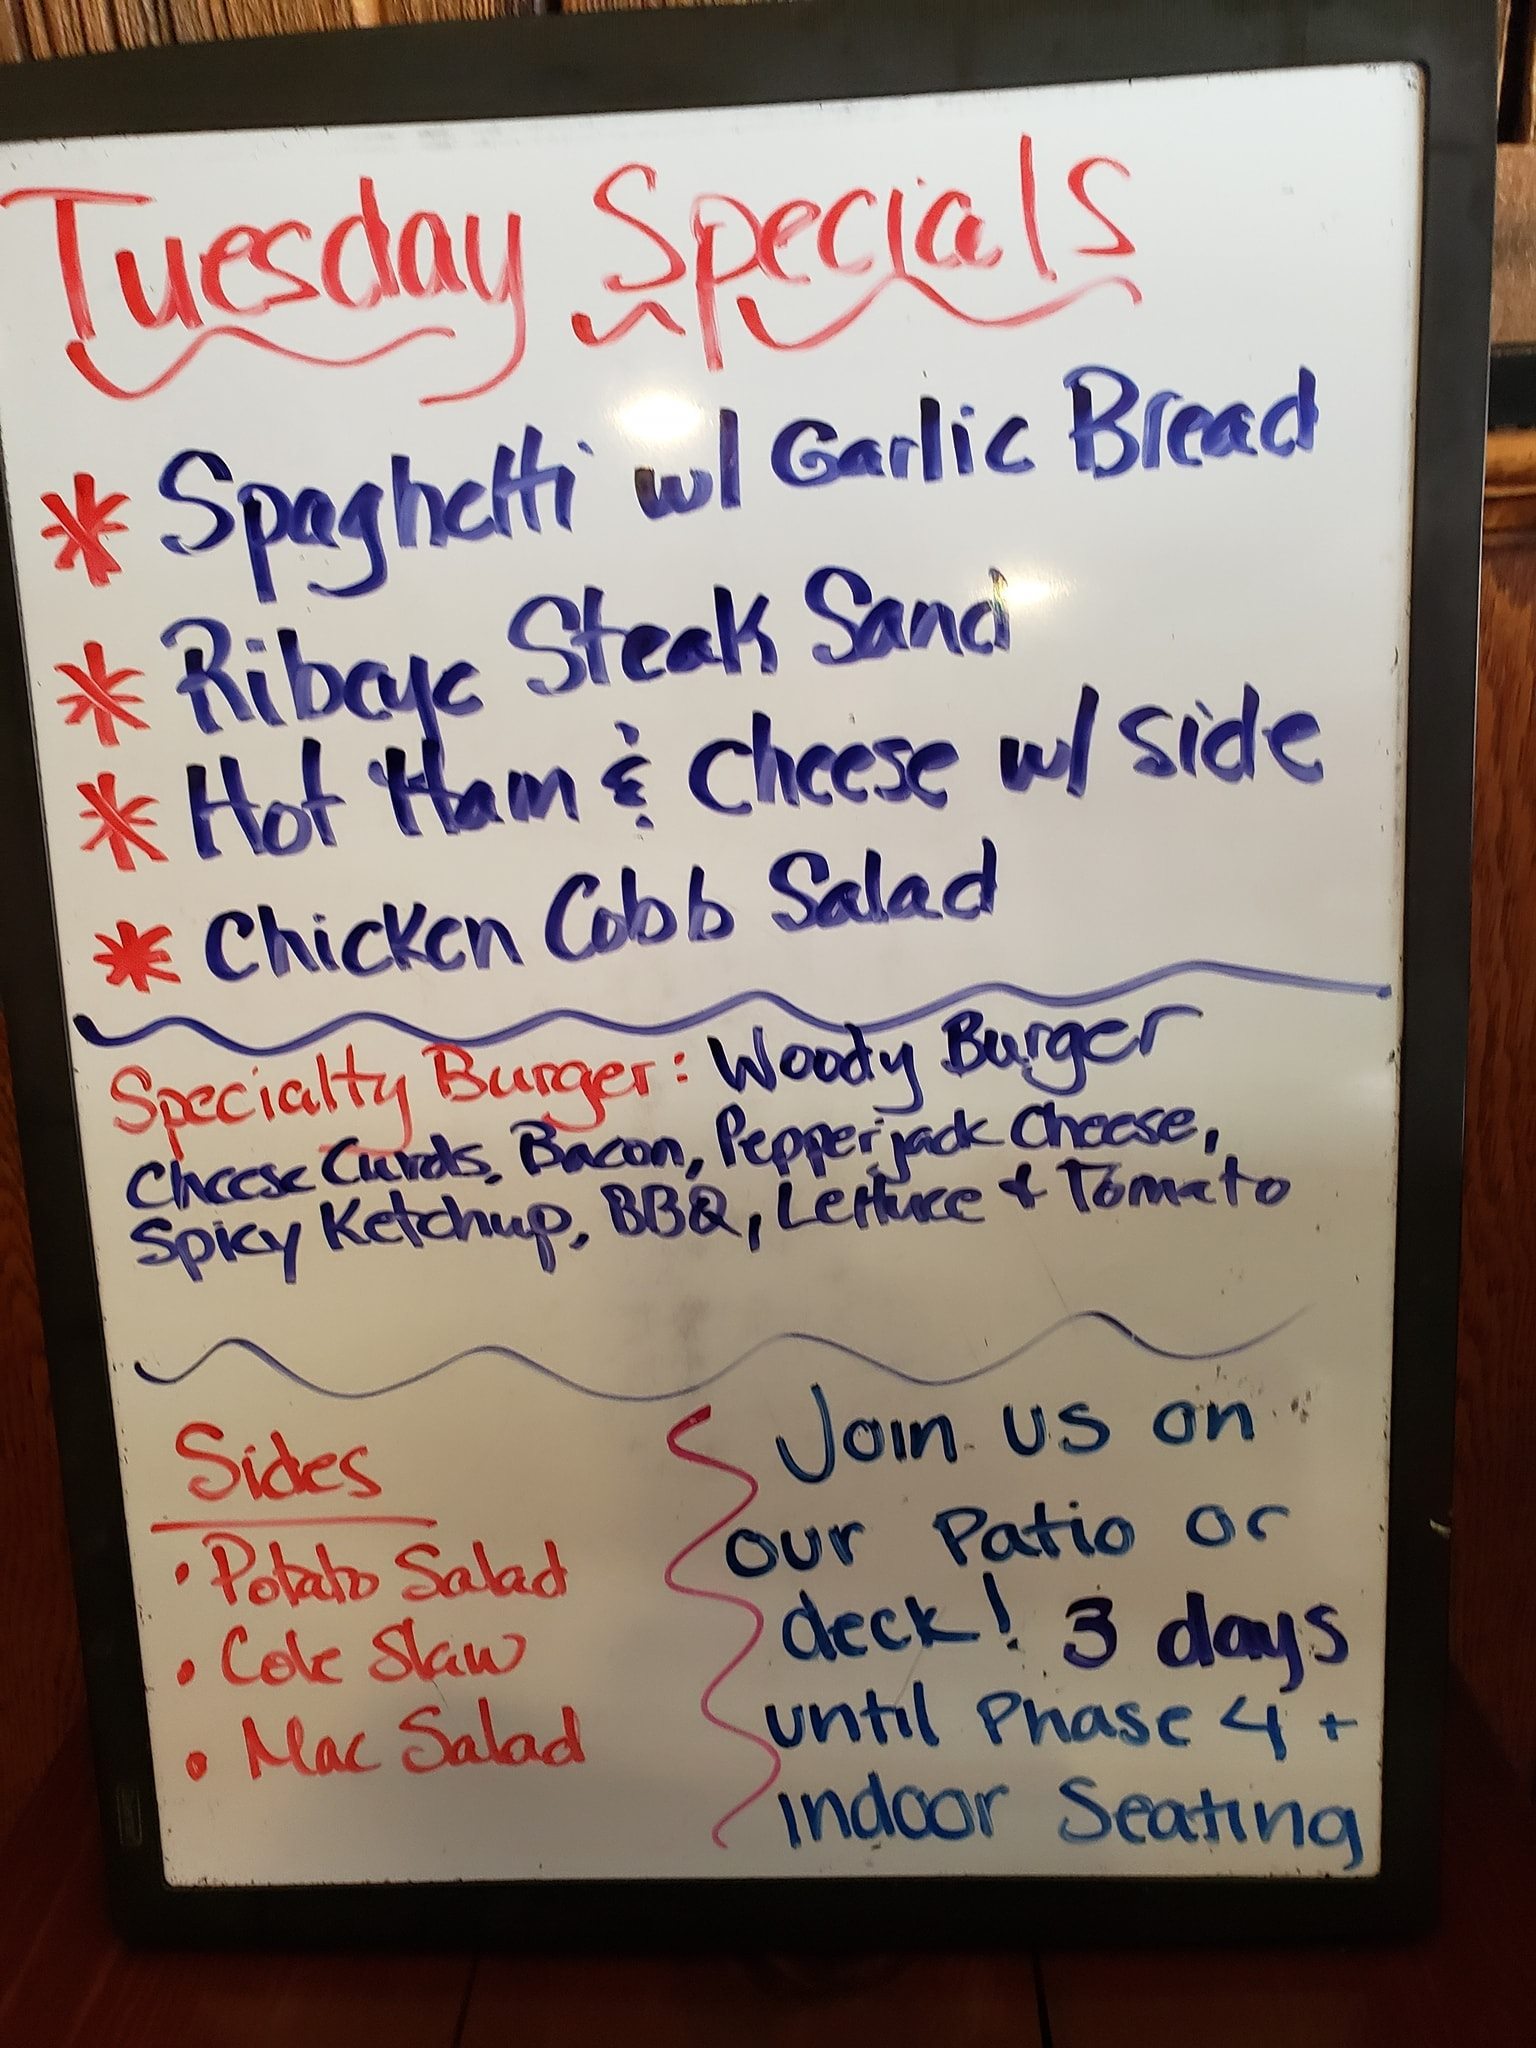 Tuesday Specials
* Spaghetti w/ Garlic Bread
* Ribeye Steak Sand
* Hot Ham & Cheese w/ side
* Chicken Cobb Salad
Specialty Burger: Woody Burger
Cheese Curds, Bacon, Pepperjack Cheese,
Spicy Ketchup, BBQ, Lettuce + Tomato
Sides
• Potato Salad
• Cole Slaw
• Mac Salad
Join us on
our Patio or
deck! 3 days
until Phase 4 +
indoor Seating